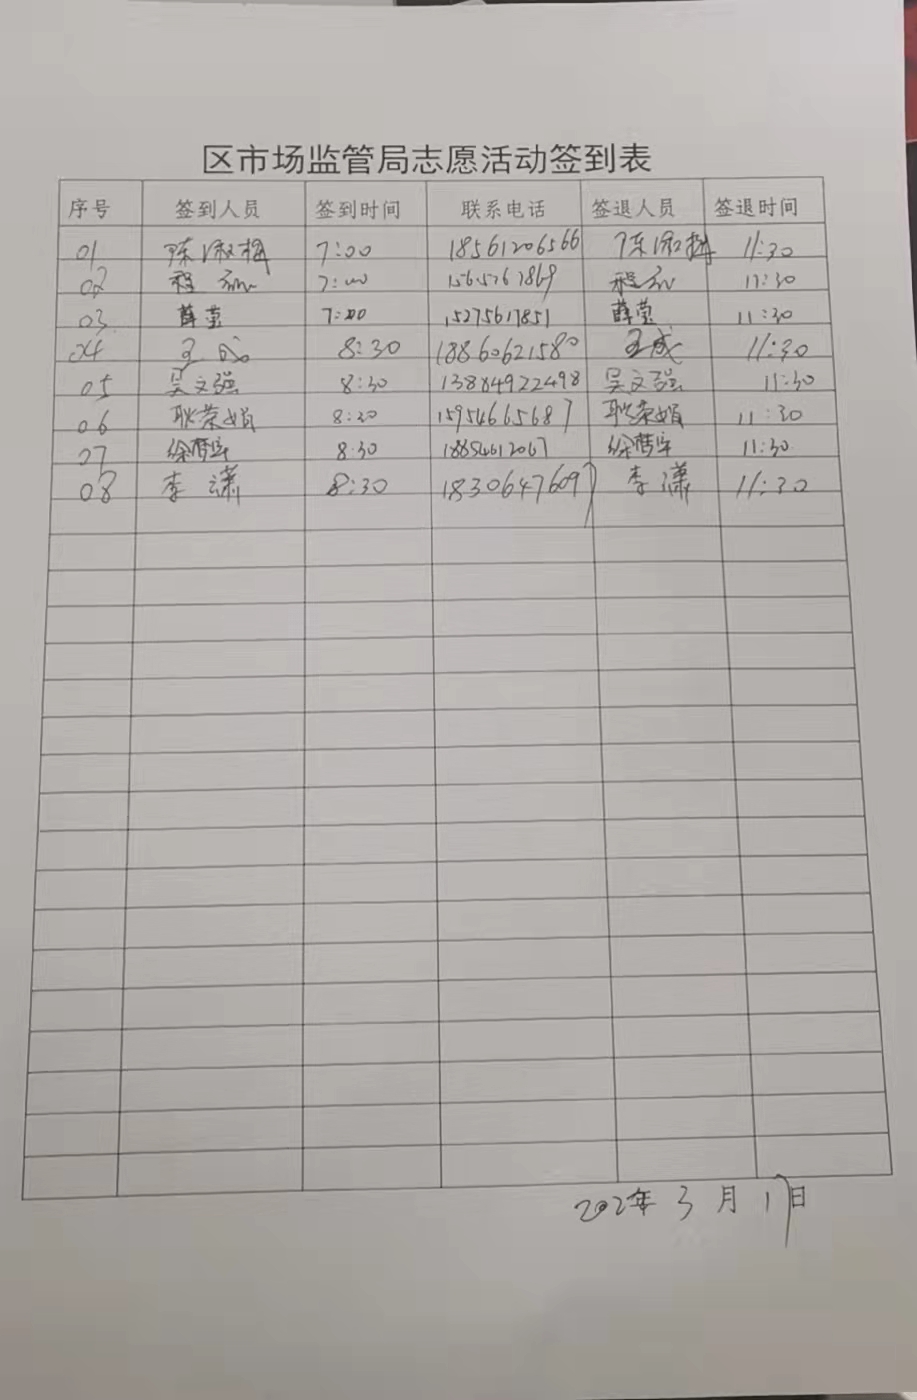 区市场监管局志愿活动签到表
序号 签到人员 签到时间 联系电话 签退人员 签退时间
01 陈淑梅 7:00 18561206566 陈淑梅 11:30
02 程 7:00 15657671869 程 11:30
03 薛莹 7:00 15275617851 薛莹 11:30
04 王成 8:30 18860621580 王成 11:30
05 吴文强 8:30 13884922498 吴文强 11:30
06 耿荣娟 8:30 15954665687 耿荣娟 11:30
07 徐 8:30 18854612067 徐 11:30
08 李潇 8:30 18306476097 李潇 11:30
2022年3月17日